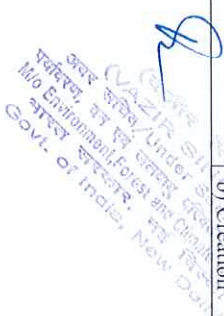 (VAZIR SI
अवर सचिव/Under S
पर्यावरण, वन एवं जलवायु
M/o Environment, Forest and Clim
भारत सरकार, नई
Govt. of India, New Del
b) Creation